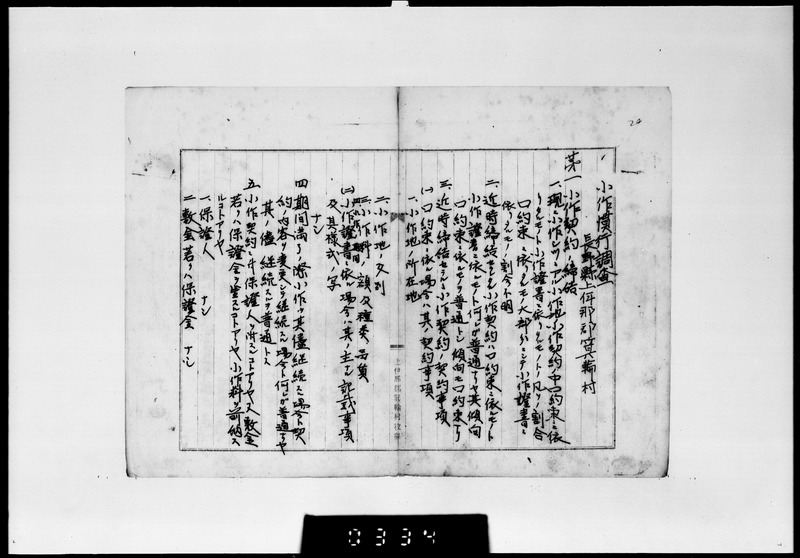 24
小作慣行調査
長野縣上伊那郡箕輪村
第一 小作契約ノ締結
一、現ニ小作シツヽアル小作地小作契約中口約束ニ依
リタルモノト小作證書ニ依リタルモノトノ凡ソノ割合
口約束ニ依リタルモノ大部分ニシテ小作證書ニ
依リタルモノノ割合不明
二、近時締結セラルル小作契約ハ口約束ニ依ルモノト
小作證書ニ依ルモノト何レガ普通ナリヤ其傾向
口約束ニ依ルモノヲ普通トシ傾向モ口約束ナリ
三、近時締結セラルル小作契約ノ契約事項
(一)口約束ニ依ル場合ハ其ノ契約事項
一、小作地ノ所在地
二、小作地ノ反別
三、小作料ノ額及種类品質
(二)小作證書ニ依ル場合ハ其ノ主ナル記載事項
及其様式ノ写
ナシ
四 期間満了ノ際小作ヲ其儘継続スル場合ト契
約ノ内容ヲ変更シテ継続スル場合ト何レガ普通ナリヤ
其ノ儘継続スルヲ普通トス
五 小作契約ニ付保證人ヲ附スルコトアリヤ又敷金
若クハ保證金ヲ差入ルコトアリヤ小作料ヲ前納ス
ルコトアリヤ
一、保證人 ナシ
二、敷金若クハ保證金 ナシ
上伊那郡箕輪村役場
0334